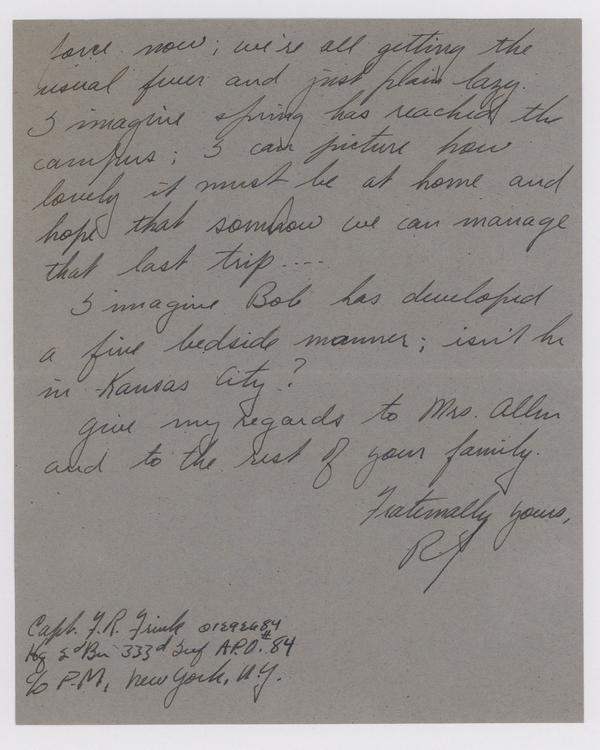 force now; we're all getting the
usual fever and just plain lazy.
I imagine spring has reached the
campus; I can picture how
lovely it must be at home and
hope that somehow we can manage
that last trip....
I imagine Bob has developed
a fine bedside manner; isn't he
in Kansas City?
Give my regards to Mrs. Allen
and to the rest of your family.
Fraternally yours,
Capt. F.R. Frink
Hq 2d Bn 333d Inf A.P.O. #84
c/o P.M., New York, N.Y.